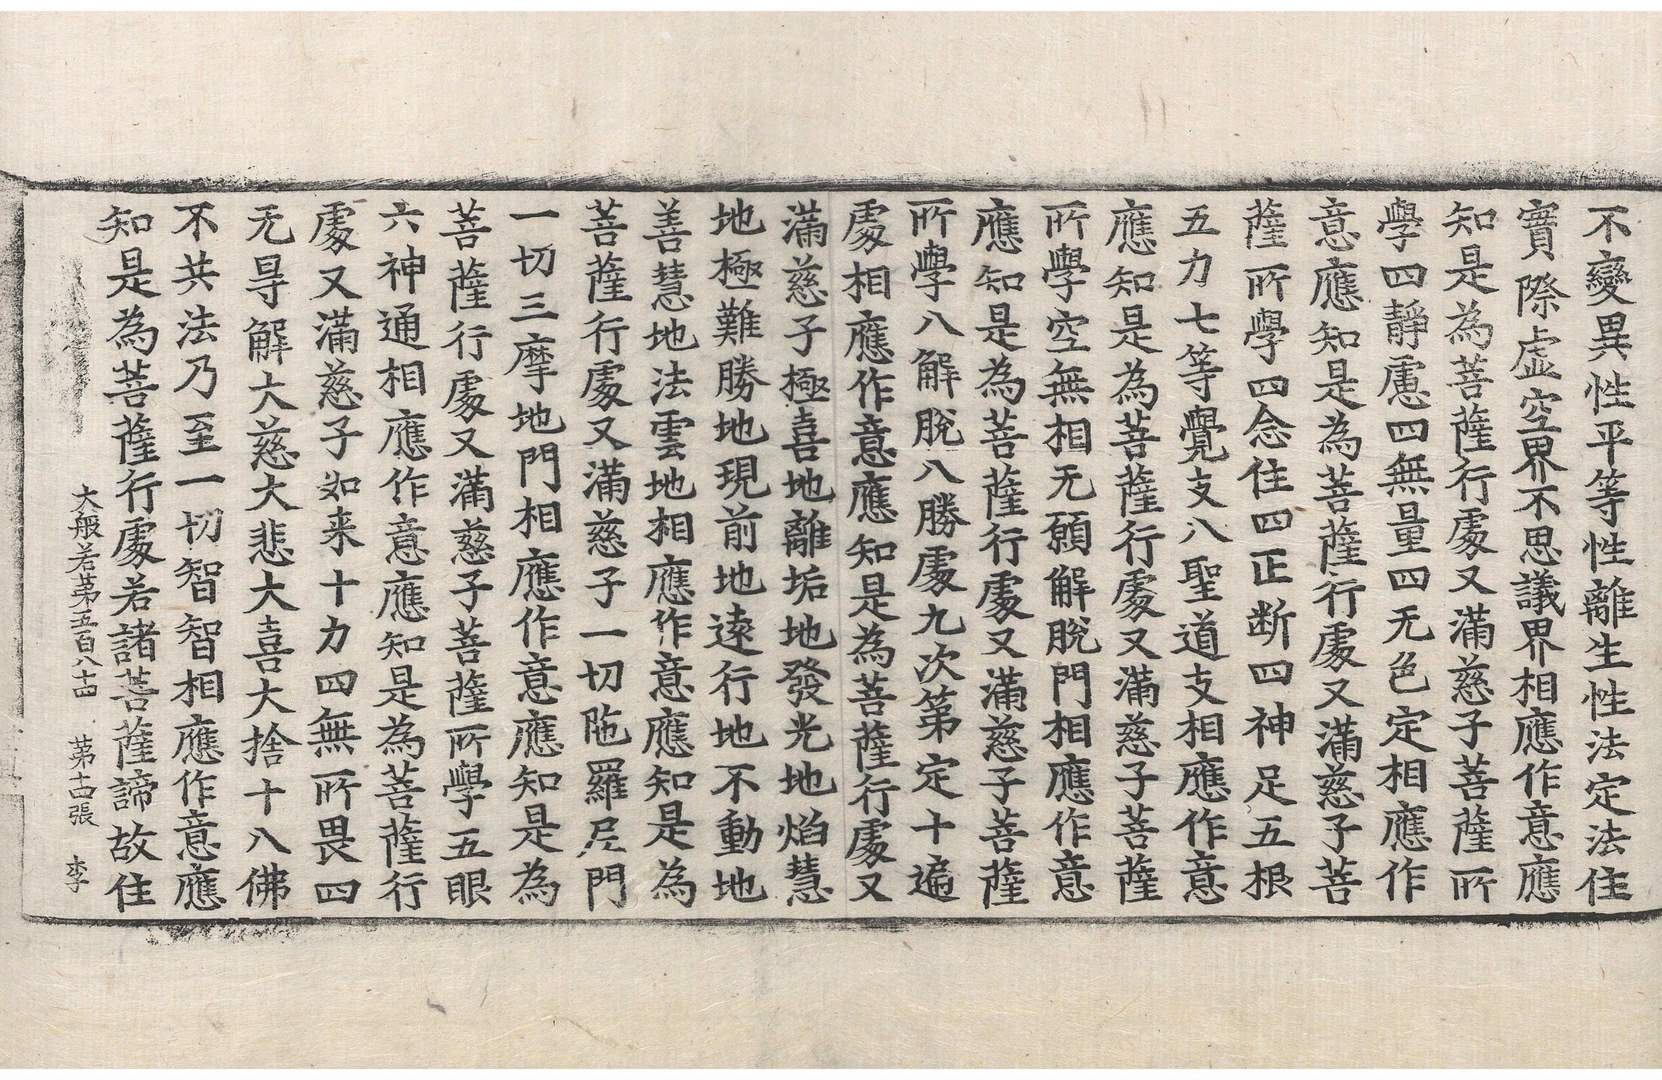 不變異性平等性離生性法定法住
實際虛空界不思議界相應作意應
知是為菩薩行處又滿慈子菩薩所
學四靜慮四無量四无色定相應作
意應知是為菩薩行處又滿慈子菩
薩所學四念住四正断四神足五根
五力七等覺支八聖道支相應作意
應知是為菩薩行處又滿慈子菩薩
所學空無相无願解脫門相應作意
應知是為菩薩行處又滿慈子菩薩
所學八解脫八勝處九次第定十遍
處相應作意應知是為菩薩行處又
滿慈子極喜地離垢地發光地焰慧
地極難勝地現前地遠行地不動地
善慧地法雲地相應作意應知是為
菩薩行處又滿慈子一切陁羅尼門
一切三摩地門相應作意應知是為
菩薩行處又滿慈子菩薩所學五眼
六神通相應作意應知是為菩薩行
處又滿慈子如来十力四無所畏四
无㝵解大慈大悲大喜大捨十八佛
不共法乃至一切智智相應作意應
知是為菩薩行處若諸菩薩諦故住
大般若苐五百八十四 苐十四張 李